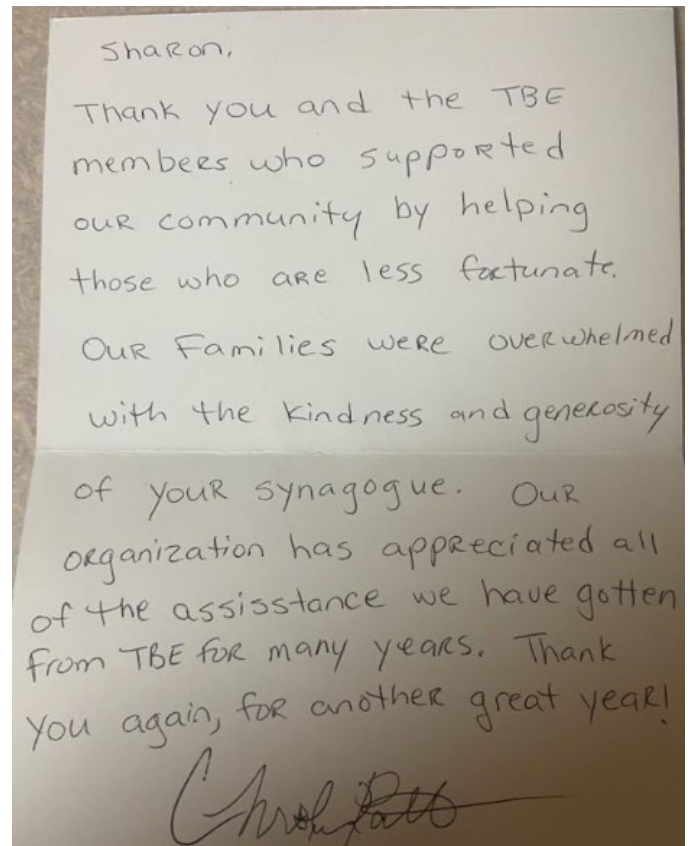 Sharon,
Thank you and the TBE
members who supported
our community by helping
those who are less fortunate.
Our Families were overwhelmed
with the kindness and generosity
of your synagogue. Our
organization has appreciated all
of the assisstance we have gotten
from TBE for many years. Thank
you again, for another great year!